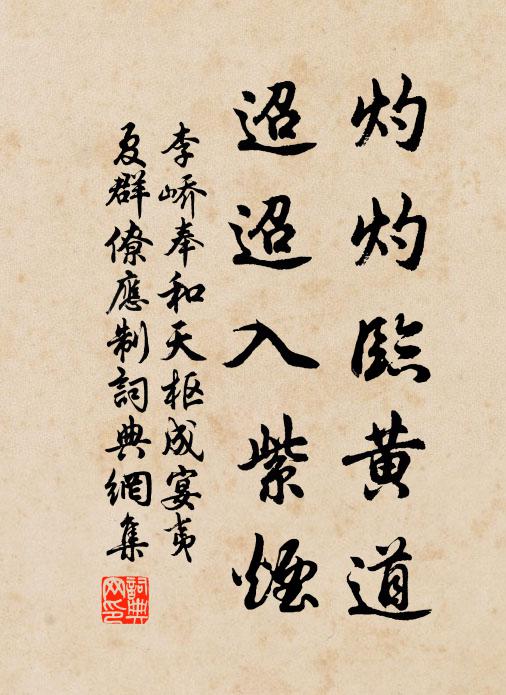 灼灼臨黃道
迢迢入紫煙
李嶠奉和天枢成宴夷
夏群僚應制詞典網集